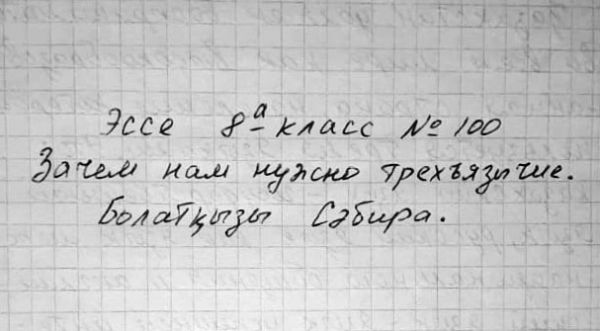 Эссе 8ᵃ класс № 100
Зачем нам нужно трехъязычие.
Болатқызы Сәбира.